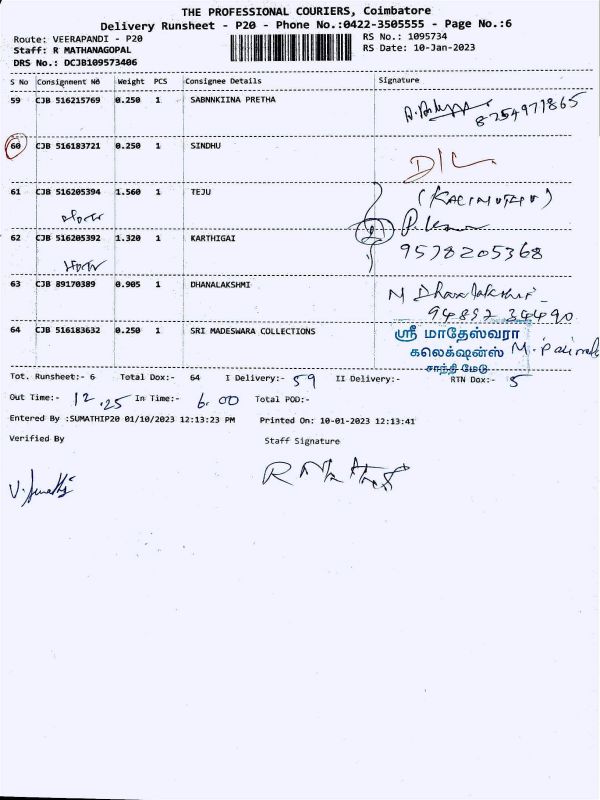 THE PROFESSIONAL COURIERS, Coimbatore
Delivery Runsheet - P20 - Phone No.:0422-3505555 - Page No.:6
Route: VEERAPANDI - P20
Staff: R MATHANAGOPAL
DRS No.: DCJB109573406
RS No.: 1095734
RS Date: 10-Jan-2023
S No Consignment NO Weight PCS Consignee Details Signature
59 CJB 516215769 0.250 1 SABNNKIINA PRETHA
8754971865
60 CJB 516183721 0.250 1 SINDHU D/L
61 CJB 516205394 1.560 1 TEJU (KALIMUTHU)
62 CJB 516205392 1.320 1 KARTHIGAI
9578205368
63 CJB 89170389 0.905 1 DHANALAKSHMI M Dhanalakshmi
94892 34490
64 CJB 516183632 0.250 1 SRI MADESWARA COLLECTIONS ஸ்ரீ மாதேஸ்வரா
கலெக்ஷன்ஸ்
சாந்தி மேடு
Tot. Runsheet:- 6 Total Dox:- 64 I Delivery:- 59 II Delivery:- RTN Dox:- 5
Out Time:- 12.25 In Time:- 6.00 Total POD:-
Entered By :SUMATHIP20 01/10/2023 12:13:23 PM Printed On: 10-01-2023 12:13:41
Verified By Staff Signature
V. Sumathi